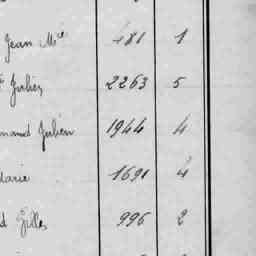 Jean Mie 481 1
Jules 2263 5
Julien 1944 4
Marie 1691 4
Gilles 996 2